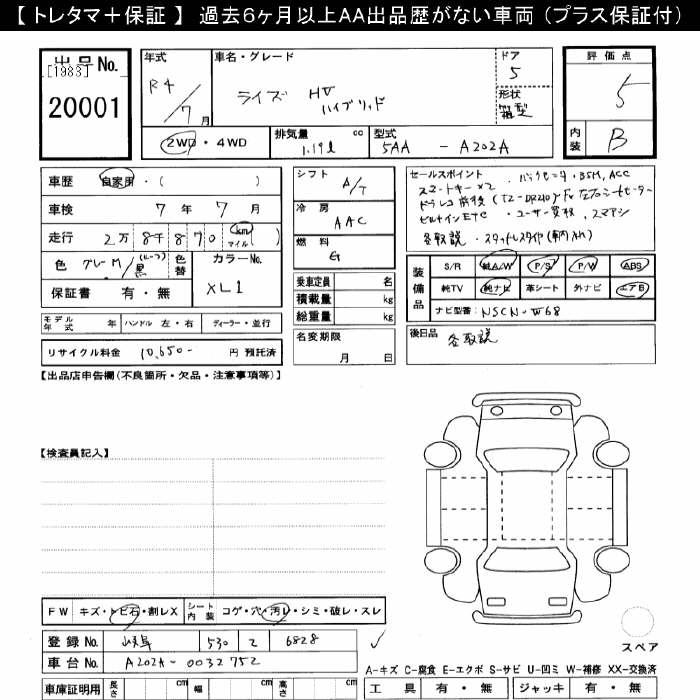 【 トレタマ＋保証 】 過去6ヶ月以上AA出品歴がない車両（プラス保証付）
出品No.
[1983]
20001
年式
R4/7月
車名・グレード
ライズ HV ハイブリッド
ドア
5
形状
箱型
評価点
5
内装
B
2WD・4WD
排気量 cc
1.19l
型式
5AA - A202A
車歴 自家用・( )
車検 7年 7月
走行 2万8千870 km マイル ( )
色 グレーM/黒(ルーフ)
色替
カラーNo.
XL1
保証書 有・無
シフト
A/T
冷房
AAC
燃料
G
乗車定員 名
積載量 kg
総重量 kg
名変期限
月 日
セールスポイント
・バックモニタ・BSM, ACC
スマートキー×2
ビルトインETC ・ユーザー買取, スマアシ
各取説・スタットレスタイヤ(車内AW)
装備品
S/R 純A/W P/S P/W ABS
純TV 純ナビ 革シート 外ナビ エアB
ナビ型番: NSCN-W68
後日品
各取説
モデル年式 年 ハンドル 左・右 ディーラー・並行
リサイクル料金 10,650- 円 預託済
【出品店申告欄(不良箇所・欠品・注意事項等)】
【検査員記入】
FW キズ・トビ石・割レX
シート内装 コゲ・穴・汚レ・シミ・破レ・スレ
登録No. 岐阜 530 て 6828
車台No. A202A-0032752
車庫証明用 長さ cm 幅 cm 高さ cm
スペア
A-キズ C-腐食 E-エクボ S-サビ U-凹ミ W-補修 XX-交換済
工具 有・無 ジャッキ 有・無